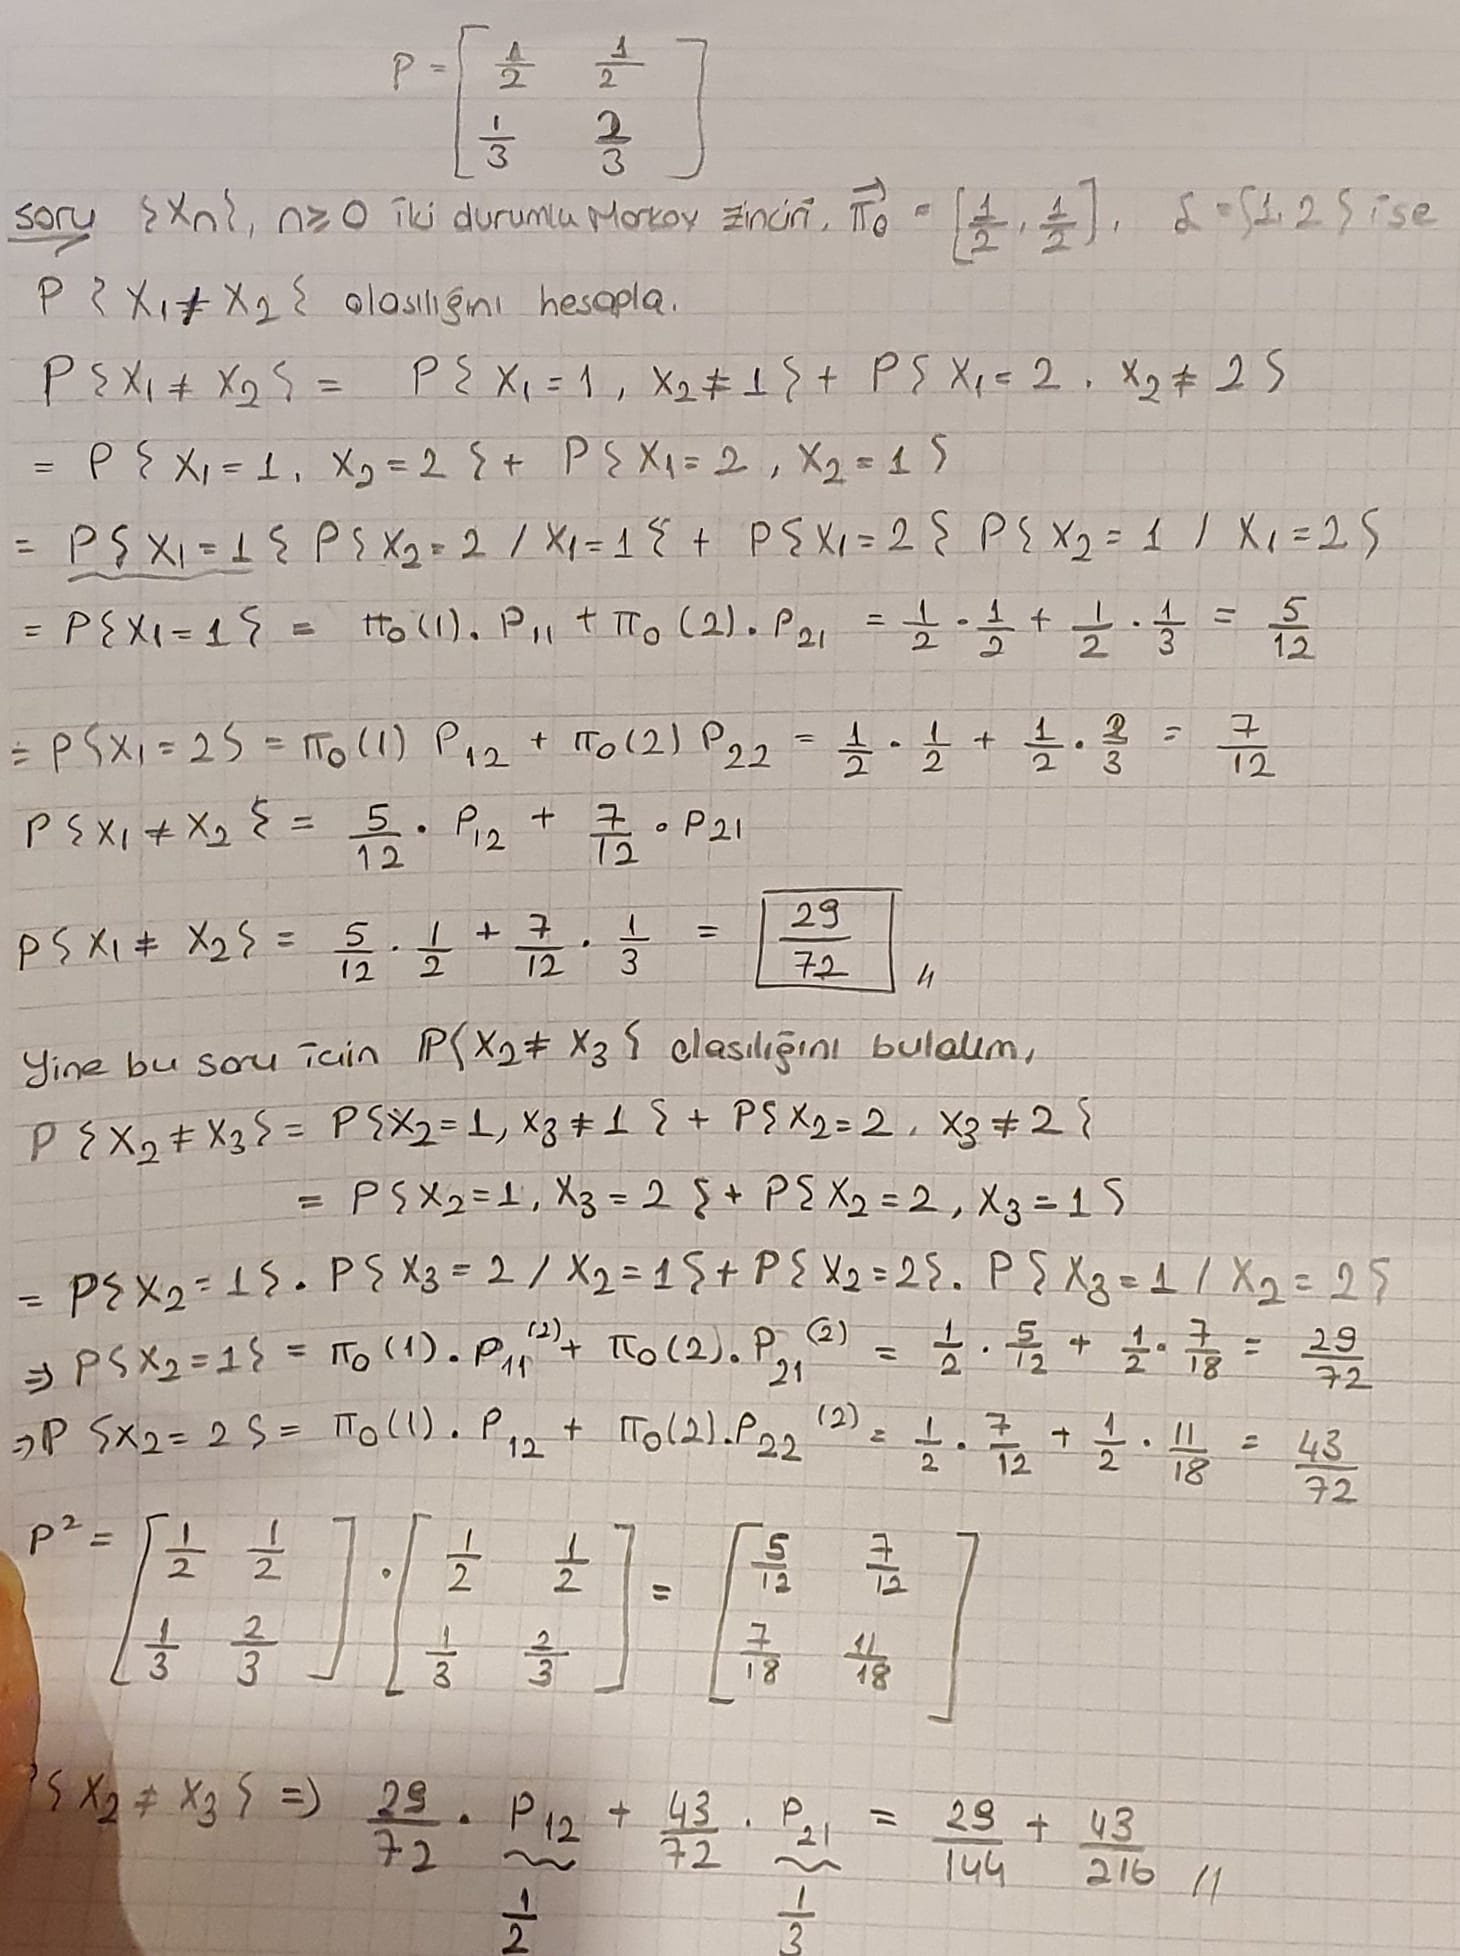 P = [ 1/2 1/2
1/3 2/3 ]
Soru {Xn}, n≥0 iki durumlu Markov zinciri, π⃗0 = [1/2, 1/2], S = {1,2} ise
P{X1 ≠ X2} olasılığını hesapla.
P{X1 ≠ X2} = P{X1 = 1, X2 ≠ 1} + P{X1 = 2, X2 ≠ 2}
= P{X1 = 1, X2 = 2} + P{X1 = 2, X2 = 1}
= P{X1 = 1} P{X2 = 2 / X1 = 1} + P{X1 = 2} P{X2 = 1 / X1 = 2}
= P{X1 = 1} = π0(1). P11 + π0(2). P21 = 1/2 . 1/2 + 1/2 . 1/3 = 5/12
= P{X1 = 2} = π0(1) P12 + π0(2) P22 = 1/2 . 1/2 + 1/2 . 2/3 = 7/12
P{X1 ≠ X2} = 5/12 . P12 + 7/12 . P21
P{X1 ≠ X2} = 5/12 . 1/2 + 7/12 . 1/3 = 29/72 //
Yine bu soru için P{X2 ≠ X3} olasılığını bulalım,
P{X2 ≠ X3} = P{X2 = 1, X3 ≠ 1} + P{X2 = 2, X3 ≠ 2}
= P{X2 = 1, X3 = 2} + P{X2 = 2, X3 = 1}
= P{X2 = 1}. P{X3 = 2 / X2 = 1} + P{X2 = 2}. P{X3 = 1 / X2 = 2}
⇒ P{X2 = 1} = π0(1). P11^(2) + π0(2). P21^(2) = 1/2 . 5/12 + 1/2 . 7/18 = 29/72
⇒ P{X2 = 2} = π0(1). P12 + π0(2). P22^(2) = 1/2 . 7/12 + 1/2 . 11/18 = 43/72
P² = [ 1/2 1/2 ] . [ 1/2 1/2 ] = [ 5/12 7/12 ]
[ 1/3 2/3 ] [ 1/3 2/3 ] [ 7/18 11/18 ]
P{X2 ≠ X3} ⇒ 29/72 . P12 + 43/72 . P21 = 29/144 + 43/216 //
1/2 1/3